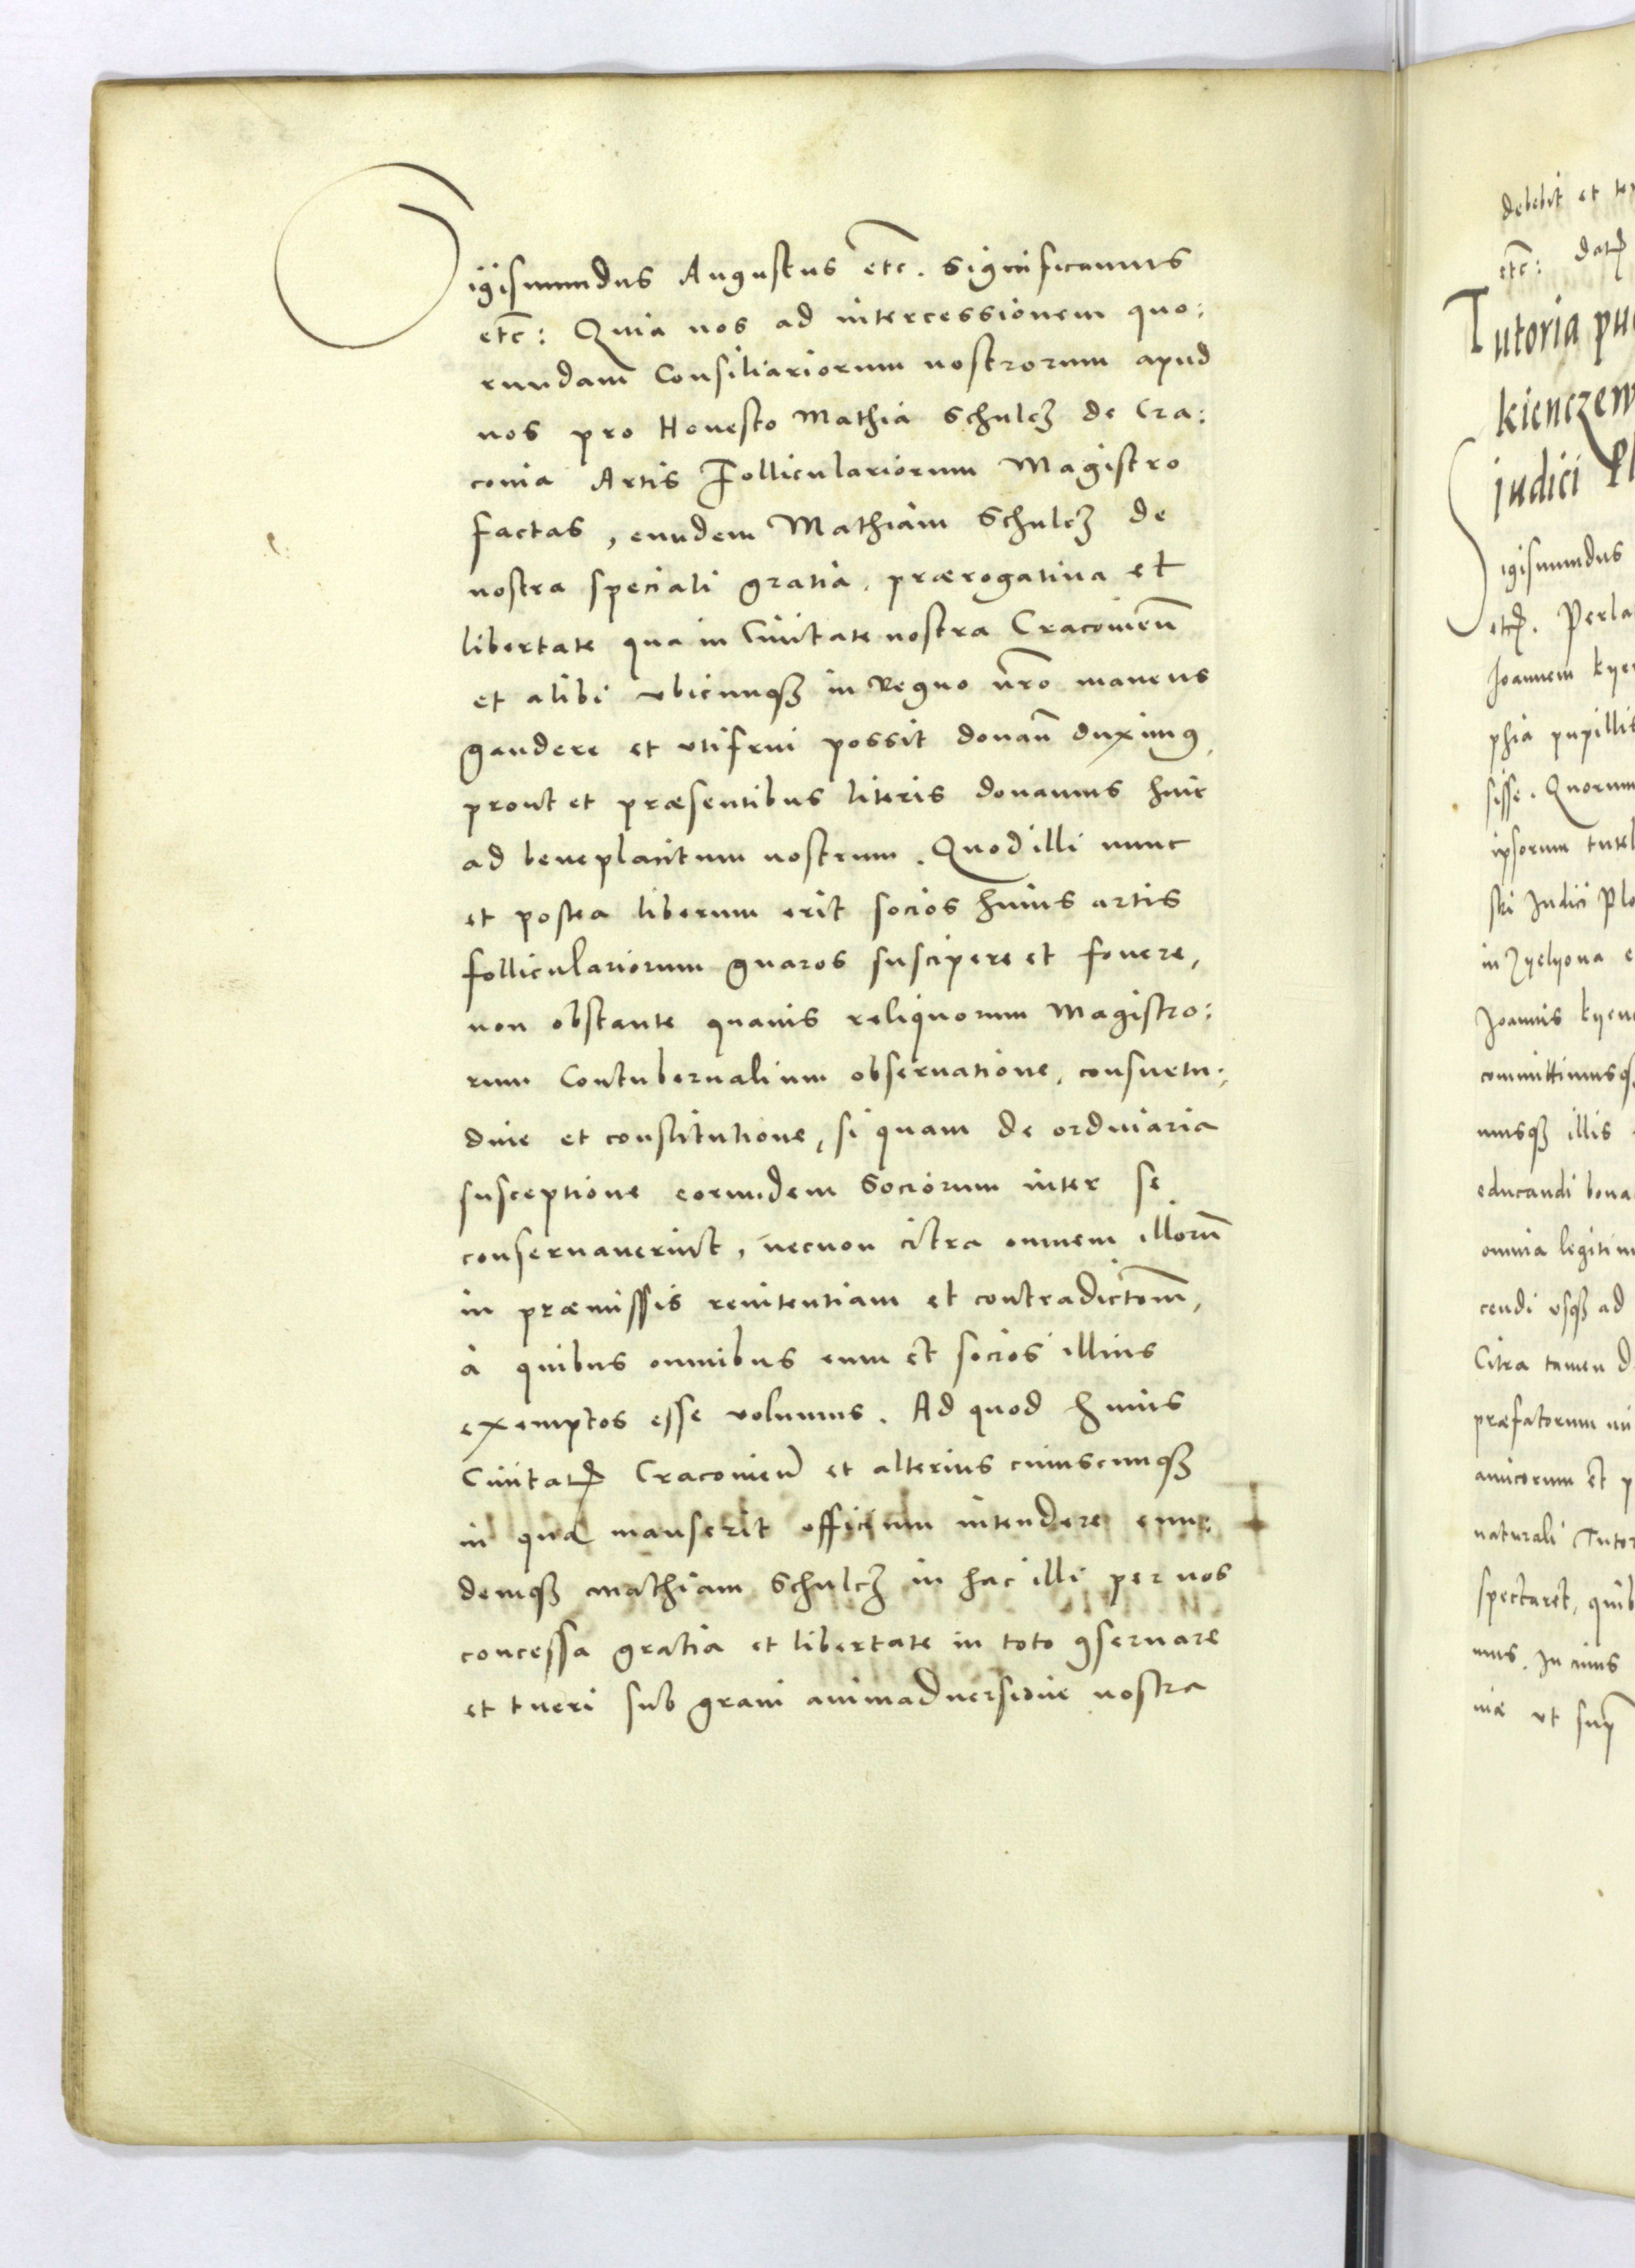 Sigismundus Augustus etc. Significamus
etc: Quia nos ad intercessionem quo:
rundam Consiliariorum nostrorum apud
nos pro Honesto Mathia Schulcz de Cra:
couia Artis Folliculariorum Magistro
factas, eundem Mathiam Schulcz de
nostra speciali gratia, prærogatiua et
libertate qua in Ciuitate nostra Cracouien̄
et alibi vbicunqꝫ in Regno nr̄o manens
gaudere et vtifrui possit donan̄ duximꝰ,
prout et præsentibus literis donamus huic
ad beneplacitum nostrum. Quod illi nunc
et postea liberum erit socios huius artis
folliculariorum gnaros suscipere et fouere,
non obstante quauis reliquorum Magistro:
rum Contubernalium obseruatione, consuetu:
dine et constitutione, si quam de ordinaria
susceptione eorundem Sociorum inter se
conseruauerint, necnon citra omnem illorum̄
in præmissis renitentiam et contradictiōm,
à quibus omnibus eum et socios illius
exemptos esse volumus. Ad quod huius
Ciuitatꝭ Cracouien̄ et alterius cuiuscunqꝫ
in qua manserit officium intendere eun:
demqꝫ Mathiam Schulcz in hac illi per nos
concessa gratia et libertate in toto ꝯseruare
et tueri sub graui animaduersione nostra
debebit et
etc: datꝭ
Tutoria
judici
Sigismundus
etcꝭ.
Joannem
phia pupillis
sisse. Quorum
ipsorum
Judici
in
Joannis
committimusqꝫ
musqꝫ illis
educandi bona
omnia
cendi vsqꝫ ad
Citra tamen
præfatorum
amicorum et
naturali
spectaret,
mus. In cuius
niæ vt